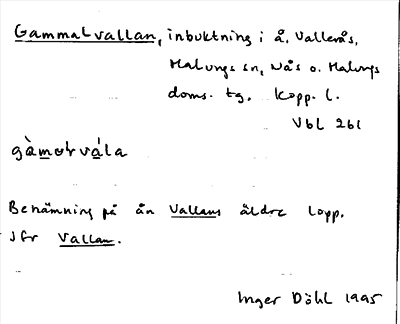 Gammalvallan, inbuktning i å, Vallerås,
Malungs sn, Nås o. Malungs
doms. tg, Kopp. l.
Vbl 261
gàmotvála
Benämning på ån Vallans äldre lopp.
Jfr Vallan.
Inger Döhl 1995